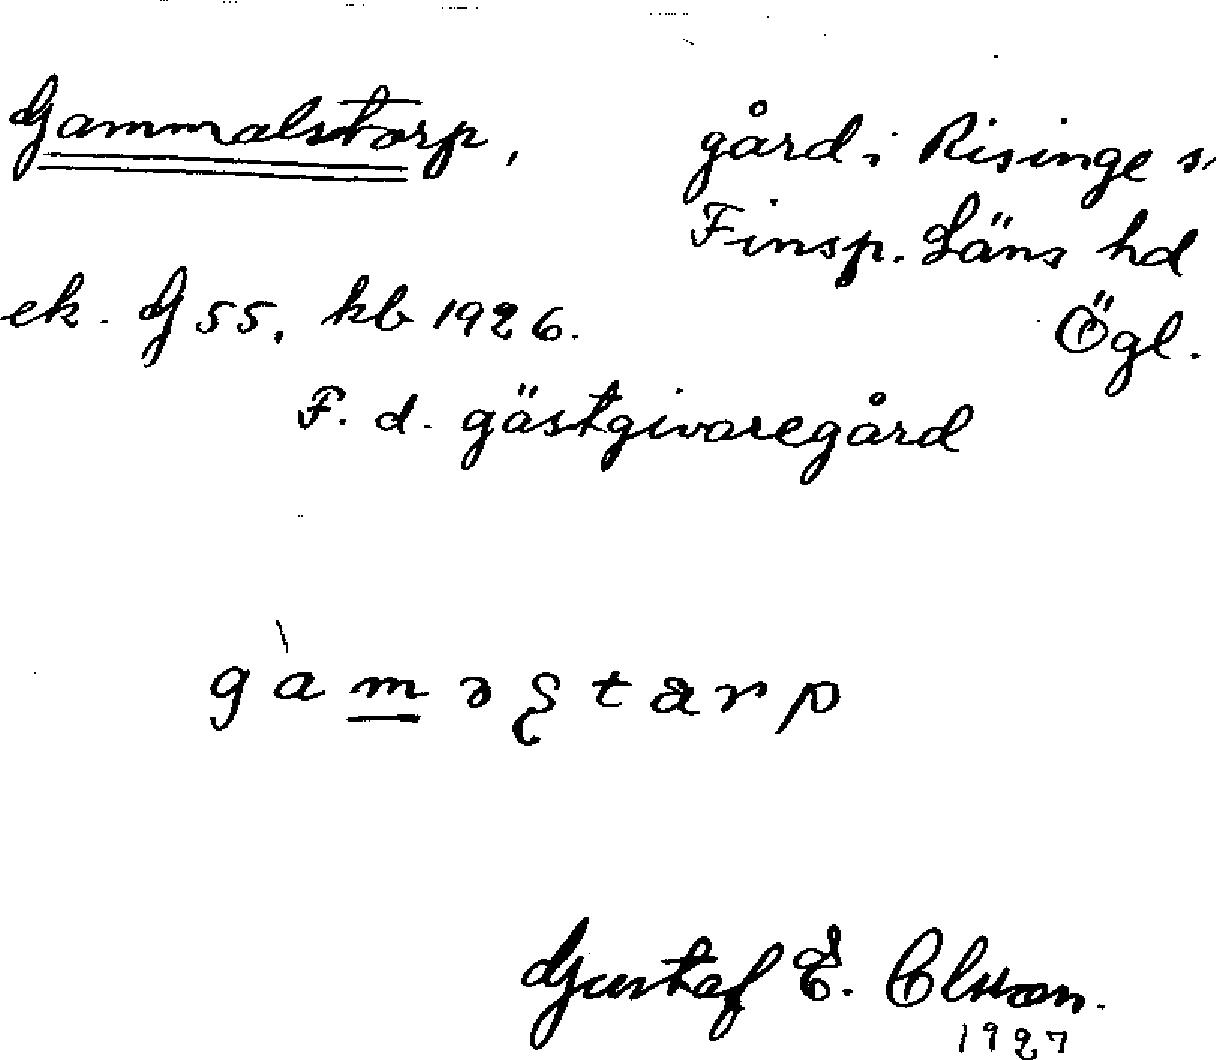 Gammalstorp, gård i Risinge s
Finsp. Läns hd
ek. G 55. kb 1926. Ögl.
F. d. gästgivaregård
gàməʂtarp
Gustaf E. Olsson.
1927